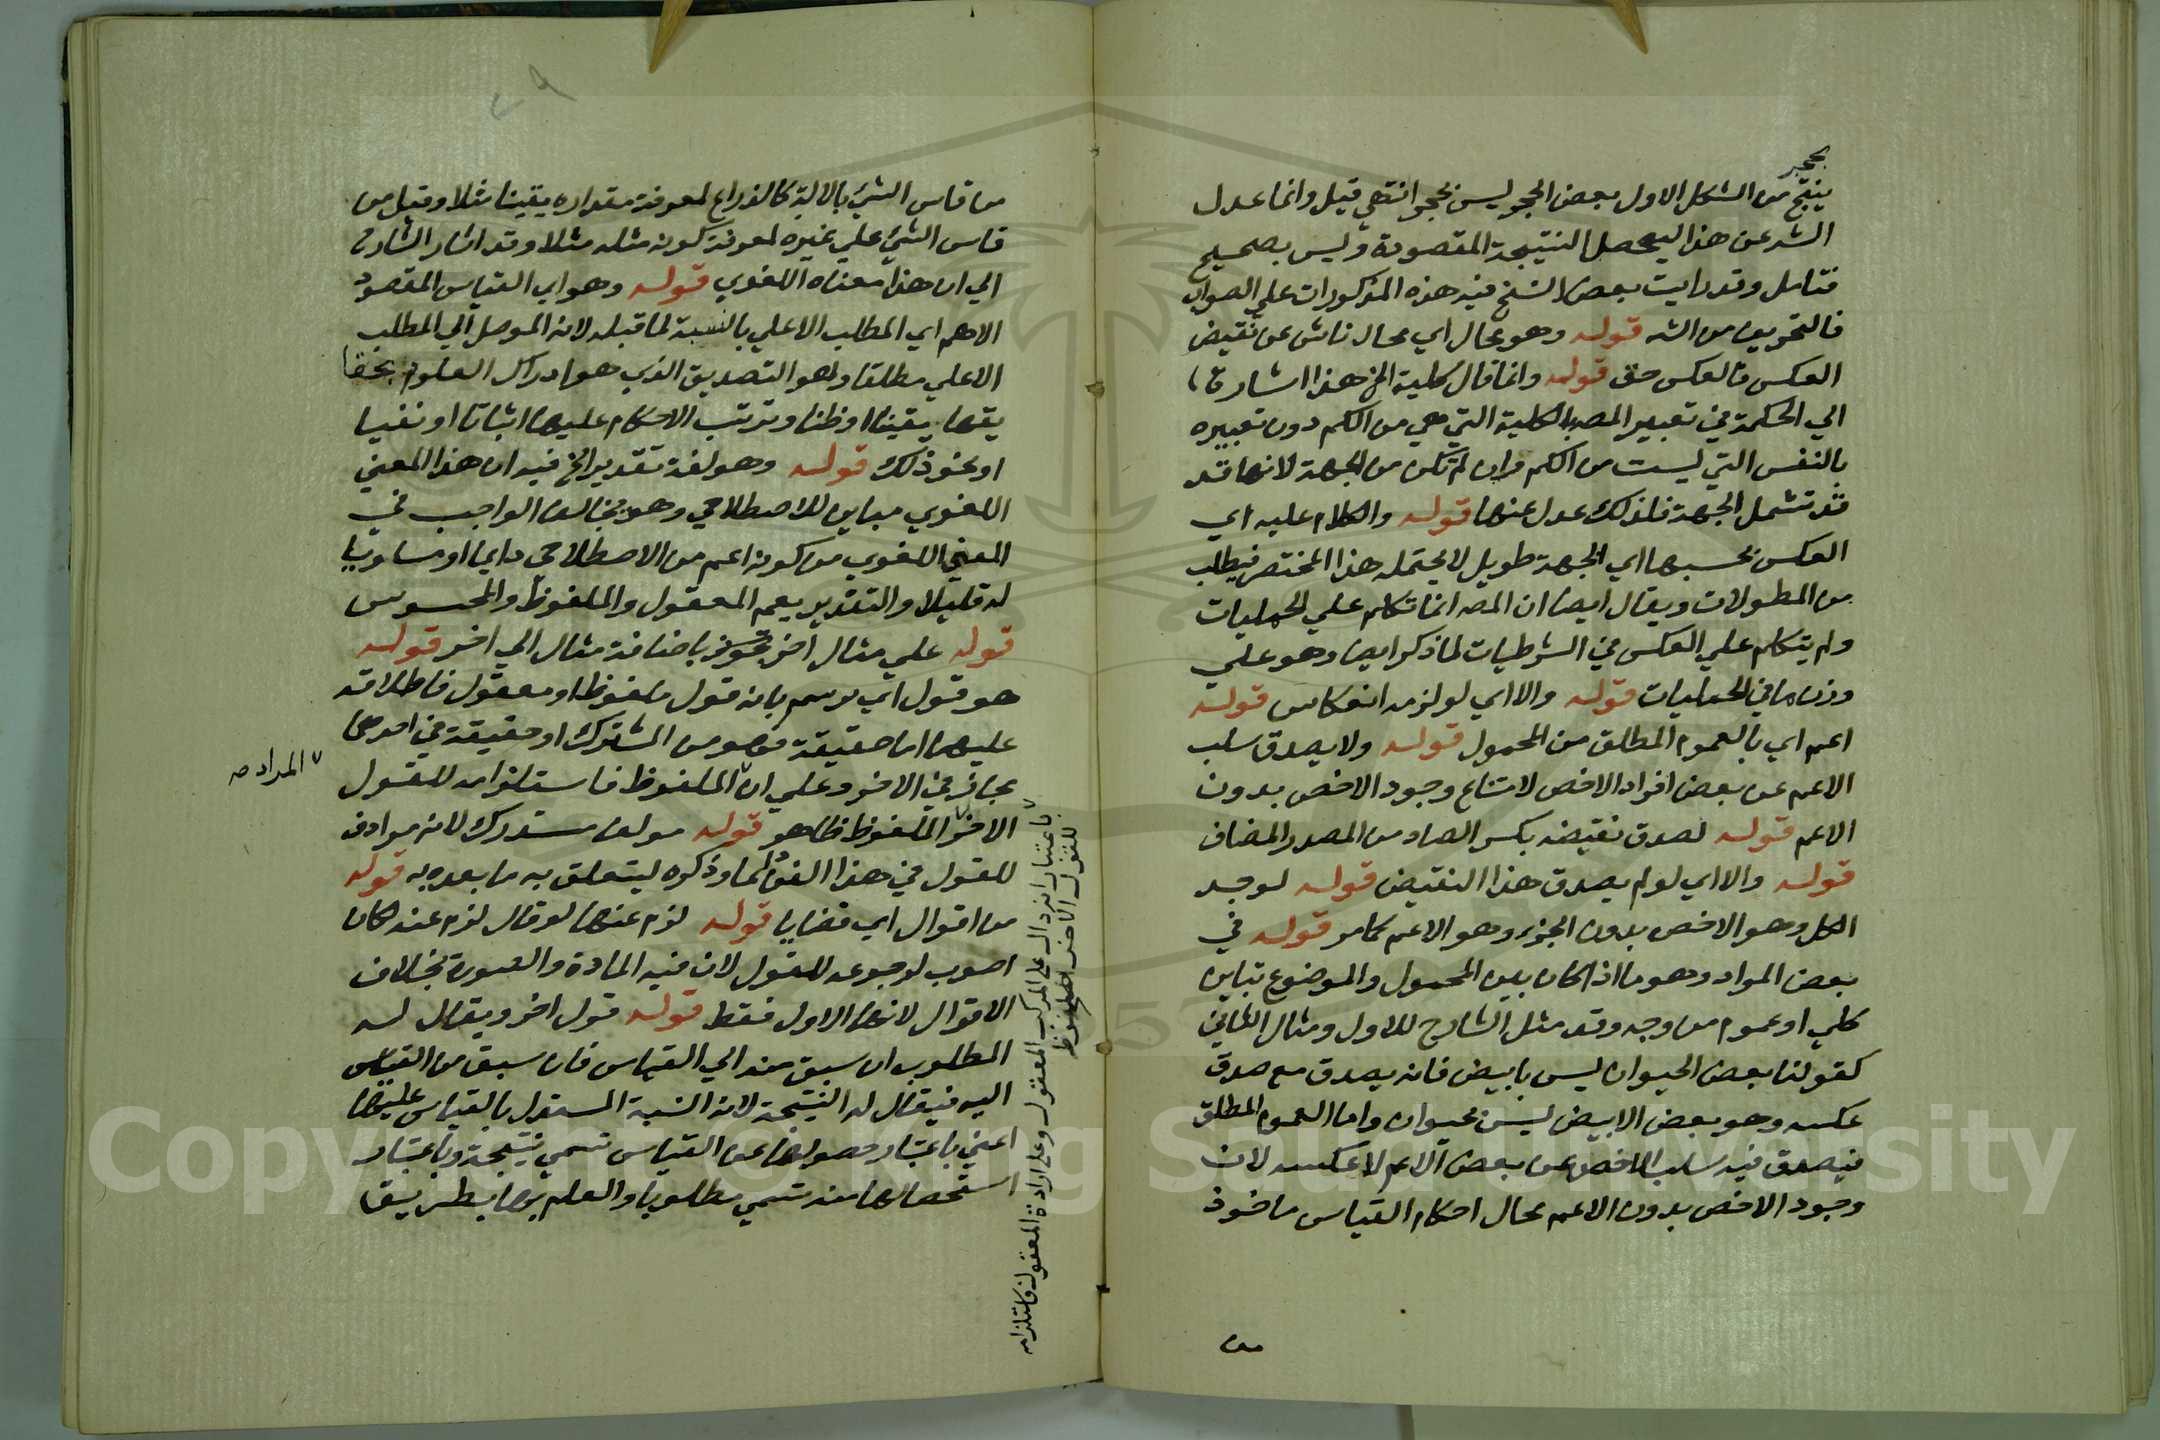 بحجر
ينتج من الشكل الاول بعض الحجر ليس بحجر انتهى قيل وانما عدل
الشه عن هذا ليحصل النتيجة المقصودة وليس بصحيح
فتامل وقد رايت بعض النسخ فيه هذه المذكورات علي الصواب
فالتحريف من الشه قوله وهو محال اي محال ناش عن نقيض
العكس فالعكس حق قوله وانما قال كلية الخ هذا اشارة
الي الحكمة في تعبير المصه بالكلية التي هي من الكم دون تعبيره
بالنفس التي ليست من الكم وان لم تكن من الجهة لانها قد
قد تشمل الجهة فلذلك عدل عنها قوله والكلام عليه اي
العكس بحسبها اي الجهة طويل لا يحتمله هذا المختصر فيطلب
من المطولات ويقال ايضا ان المصه انما تكلم علي الحمليات
ولم يتكلم علي العكس في الشرطيات لما ذكر ايضا وهو علي
وزن ما في الحمليات قوله والا اي لو لزمه انعكاس قوله
اعم اي بالعموم المطلق من المحمول قوله ولا يصدق سلب
الاعم عن بعض افراد الاخص لامتناع وجود الاخص بدون
الاعم قوله لصدق نقيضه بكسر الصاد من المصدر المضاف
قوله والا اي لو لم يصدق هذا النقيض قوله لوجد
الكل وهو الاخص بدون الجزء وهو الاعم كما مر قوله في
بعض المواد وهو ما اذا كان بين المحمول والموضوع تباين
كلي او عموم من وجه وقد مثل الشارح للاول ومثال الثاني
كقولنا بعض الحيوان ليس بابيض فانه يصدق مع صدق
عكسه وهو بعض الابيض ليس بحيوان واما العموم المطلق
فيصدق فيه سلب الاخص عن بعض الاعم لا عكسه لان
وجود الاخص بدون الاعم محال احكام القياس ماخوذ
من
من قاس الشئ بالالة كالذراع لمعرفة مقداره يقينا مثلا وقيل من
قاس الشئ علي غيره لمعرفة كونه مثله مثلا وقد اشار الشارح
الي ان هذا معناه اللغوي قوله وهو اي القياس المقصود
الاهم اي المطلب الاعلي بالنسبة لما قبله لانه الموصل الي المطلب
الاعلي مطلقا وهو التصديق الذي هو ادراك العلوم
يقينا او ظنا وترتب الاحكام عليها اثباتا او نفيا
او نحو ذلك قوله وهو لغة تقدير الخ فيه ان هذا المعني
اللغوي مباين للاصطلاحي وهو مخالف الواجب في
المعني اللغوي من كونه اعم من الاصطلاحي دايما او مساويا
له قليلا والتقدير يعم المعقول والملفوظ والمحسوس
قوله علي مثال اخر باضافة مثال الي اخر قوله
هو قول اي يرسم بانه قول ملفوظ او معقول فاطلاقه
عليهما اما حقيقة فهو من المشترك او حقيقة في احدهما
مجاز في الاخر وعلي ان الملفوظ فاستلزامه للقول
الاخر الملفوظ ظاهر قوله مولف مستدرك لانه مرادف
للقول في هذا الفن لما وذكره ليتعلق به ما بعده به قوله
من اقوال اي قضايا قوله لزم عنها لو قال لزم عنه كان
اصوب لرجوعه للقول لان فيه المادة والصورة بخلاف
الاقوال لانها الاول فقط قوله قول اخر ويقال له
المطلوب ان سبق منه الي القياس فان سبق من القياس
اليه فيقال له النتيجة لانه النسبة المستدل بالقياس عليها
اعني باعتبار حصولها عن القياس تسمي نتيجة وباعتبار
استحصالها منه تسمي مطلوبا والعلم بها بطريق
المراد صه
باعتبار انه دال علي المركب المعقول وعلي ارادة المعقول فاستلزامه
للقول الاخر الملفوظ